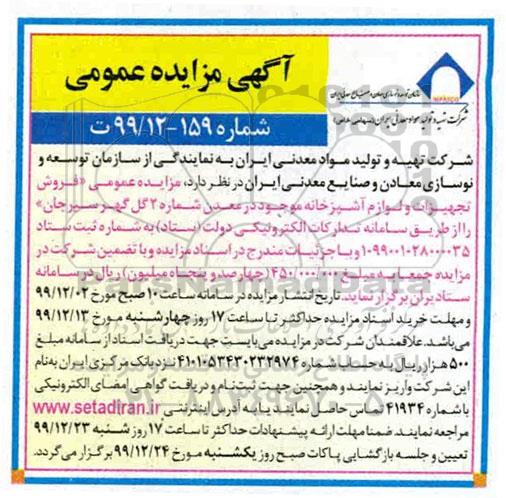 آگهی مزایده عمومی
شماره ۱۵۹-۹۹/۱۲ ت
IMPASCO
سازمان توسعه و نوسازی معادن و صنایع معدنی ایران
شرکت تهیه و تولید مواد معدنی ایران (سهامی خاص)
شرکت تهیه و تولید مواد معدنی ایران به نمایندگی از سازمان توسعه و
نوسازی معادن و صنایع معدنی ایران در نظر دارد، مزایده عمومی «فروش
تجهیزات و لوازم آشپزخانه موجود در معدن شماره ۲ گل گهر سیرجان»
را از طریق سامانه تدارکات الکترونیکی دولت (ستاد) به شماره ثبت ستاد
۱۰۹۹۰۰۱۰۲۸۰۰۰۰۳۵ و با جزئیات مندرج در اسناد مزایده و با تضمین شرکت در
مزایده جمعا به مبلغ ۴۵۰/۰۰۰/۰۰۰ (چهارصد و پنجاه میلیون) ریال در سامانه
ستاد ایران برگزار نماید. تاریخ انتشار مزایده در سامانه ساعت ۱۰ صبح مورخ ۹۹/۱۲/۰۲
و مهلت خرید اسناد مزایده حداکثر تا ساعت ۱۷ روز چهارشنبه مورخ ۹۹/۱۲/۱۳
می باشد. علاقمندان شرکت در مزایده می بایست جهت دریافت اسناد از سامانه مبلغ
۵۰۰ هزار ریال به حساب شماره ۴۱۰۱۰۵۳۴۳۰۲۳۲۹۷۴ نزد بانک مرکزی ایران به نام
این شرکت واریز نمایند و همچنین جهت ثبت نام و دریافت گواهی امضای الکترونیکی
با شماره ۴۱۹۳۴ تماس حاصل نمایند یا به آدرس اینترنتی www.setadiran.ir
مراجعه نمایند. ضمنا مهلت ارائه پیشنهادات حداکثر تا ساعت ۱۷ روز شنبه ۹۹/۱۲/۲۳
تعیین و جلسه بازگشایی پاکات صبح روز یکشنبه مورخ ۹۹/۱۲/۲۴ برگزار می گردد.
ParsNamadData